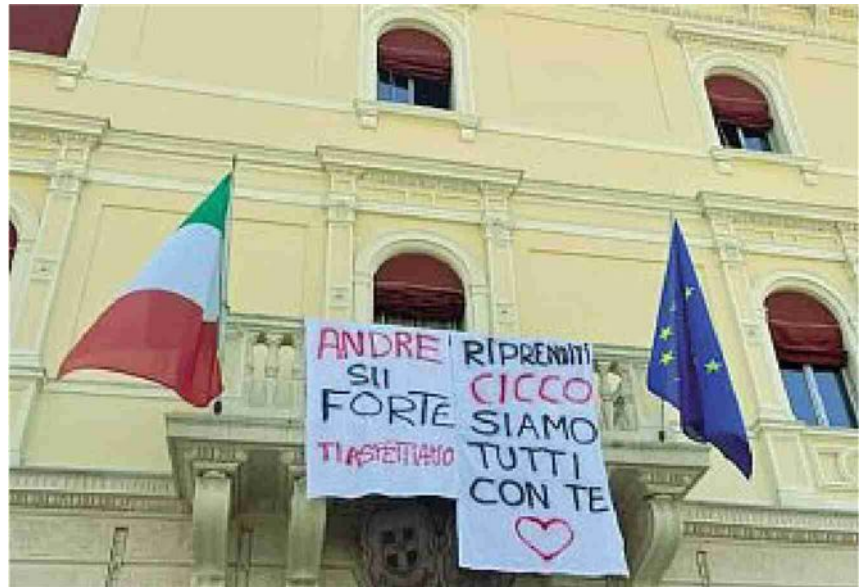 ANDRE'
SII
FORTE
TI ASPETTIAMO
RIPRENDITI
CICCO
SIAMO
TUTTI
CON TE